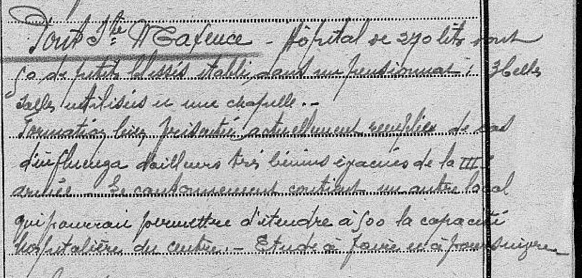 Pont Ste Maxence - Hôpital de 270 lits dont
50 de petits blessés établi dans un pensionnat : 3 belles
salles utilisées et une chapelle. -
Formation bien présentée actuellement remplie de cas
d'influenza d'ailleurs très bénins évacués de la IIIe
armée. Le cantonnement contient un autre local
qui pourrait permettre d'étendre à 500 la capacité
hospitalière du centre. - Etude à faire et à poursuivre